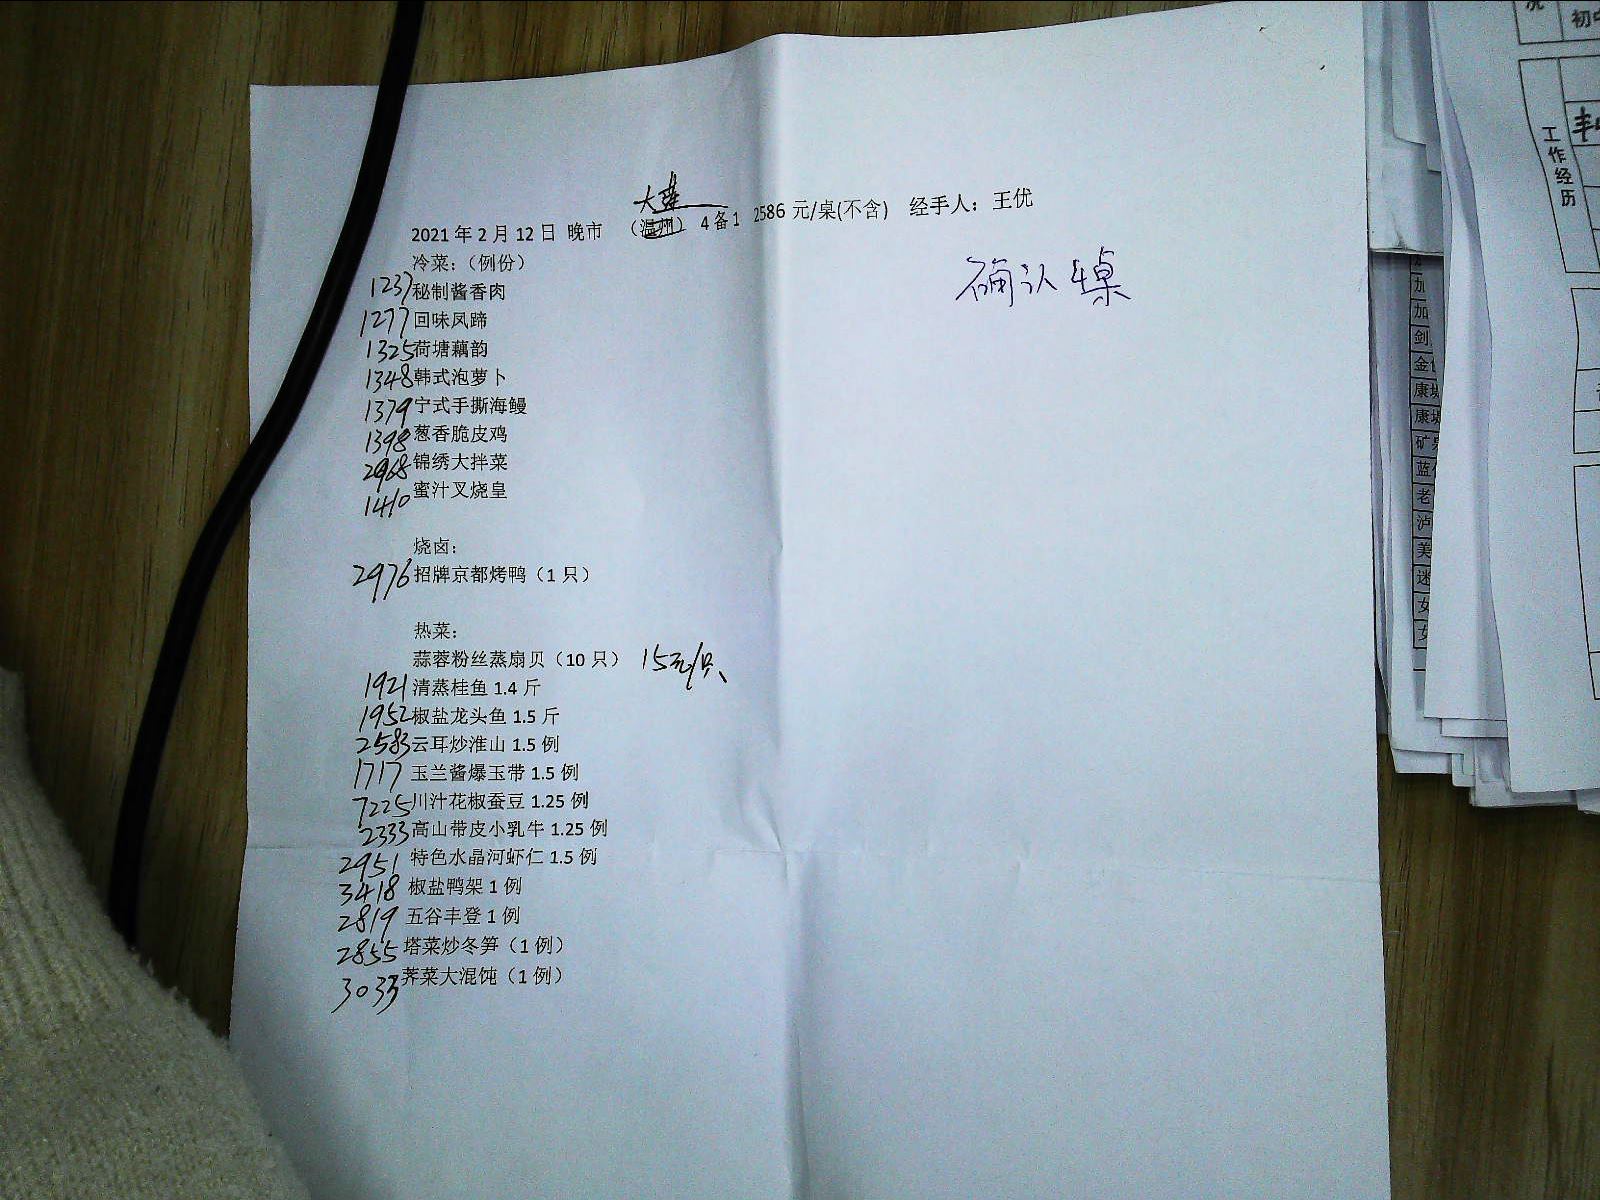 大连
2021 年 2 月 12 日 晚市 （温州） 4 备 1 2586 元/桌(不含) 经手人：王优
冷菜：（例份）
确认4桌
1237 秘制酱香肉
1277 回味凤蹄
1325 荷塘藕韵
1348 韩式泡萝卜
1379 宁式手撕海鳗
1398 葱香脆皮鸡
2968 锦绣大拌菜
1410 蜜汁叉烧皇
烧卤：
2976 招牌京都烤鸭（1 只）
热菜：
蒜蓉粉丝蒸扇贝（10 只） 15元/只
1921 清蒸桂鱼 1.4 斤
1952 椒盐龙头鱼 1.5 斤
2583 云耳炒淮山 1.5 例
1717 玉兰酱爆玉带 1.5 例
7225 川汁花椒蚕豆 1.25 例
2333 高山带皮小乳牛 1.25 例
2951 特色水晶河虾仁 1.5 例
3418 椒盐鸭架 1 例
2819 五谷丰登 1 例
2855 塔菜炒冬笋（1 例）
3033 荠菜大混饨（1 例）
况
初中
工作经历
加
加
剑
金
康
康
矿
蓝
老
泸
美
迷
女
女